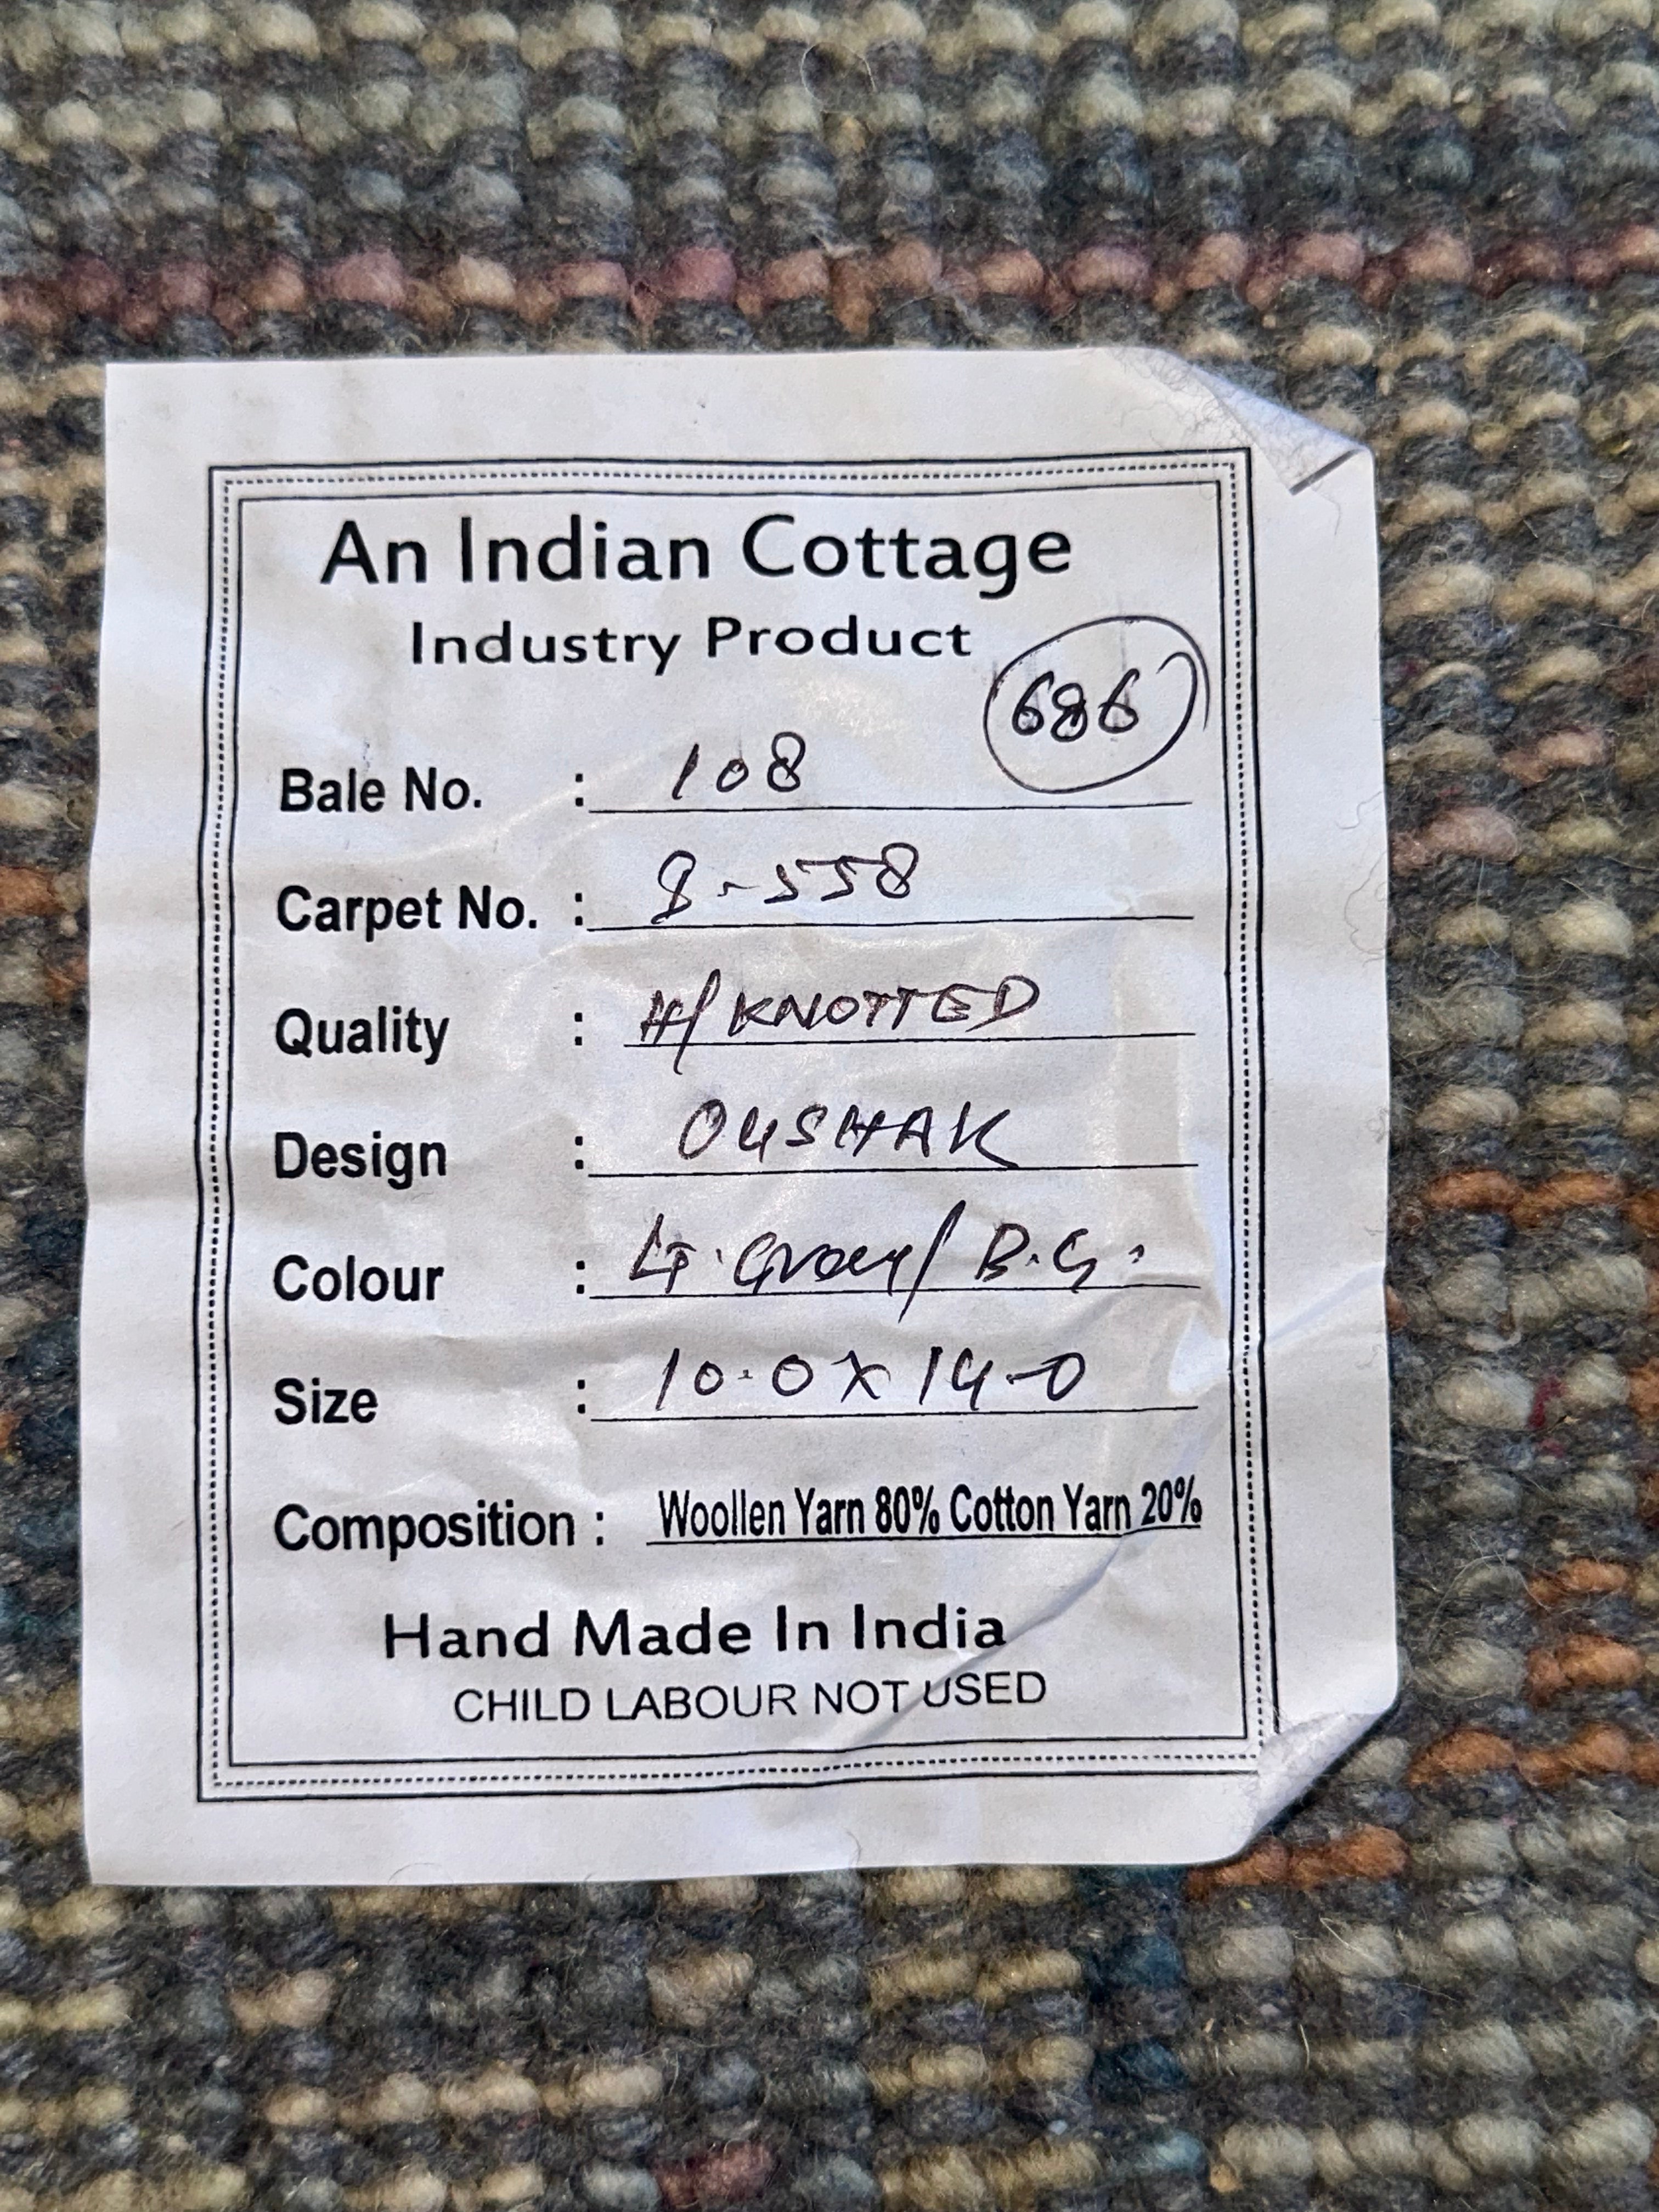 An Indian Cottage
Industry Product
686
Bale No. : 108
Carpet No. : 8-558
Quality : H/KNOTTED
Design : OUSHAK
Colour : LT. Gray/ B.G.
Size : 10.0 X 14-0
Composition : Woollen Yarn 80% Cotton Yarn 20%
Hand Made In India
CHILD LABOUR NOT USED